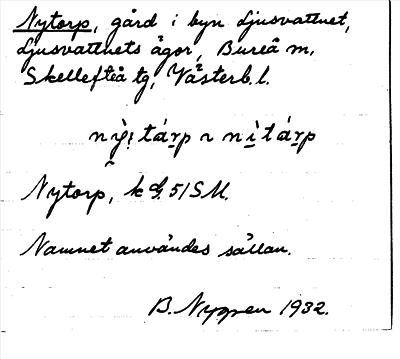 Nytorp, gård i byn Ljusvattnet,
Ljusvattnets ägor, Bureå m,
Skellefteå tg, Västerb. l.
Nytorp, k
Namnet användes sällan.
B. Nygren 1932.